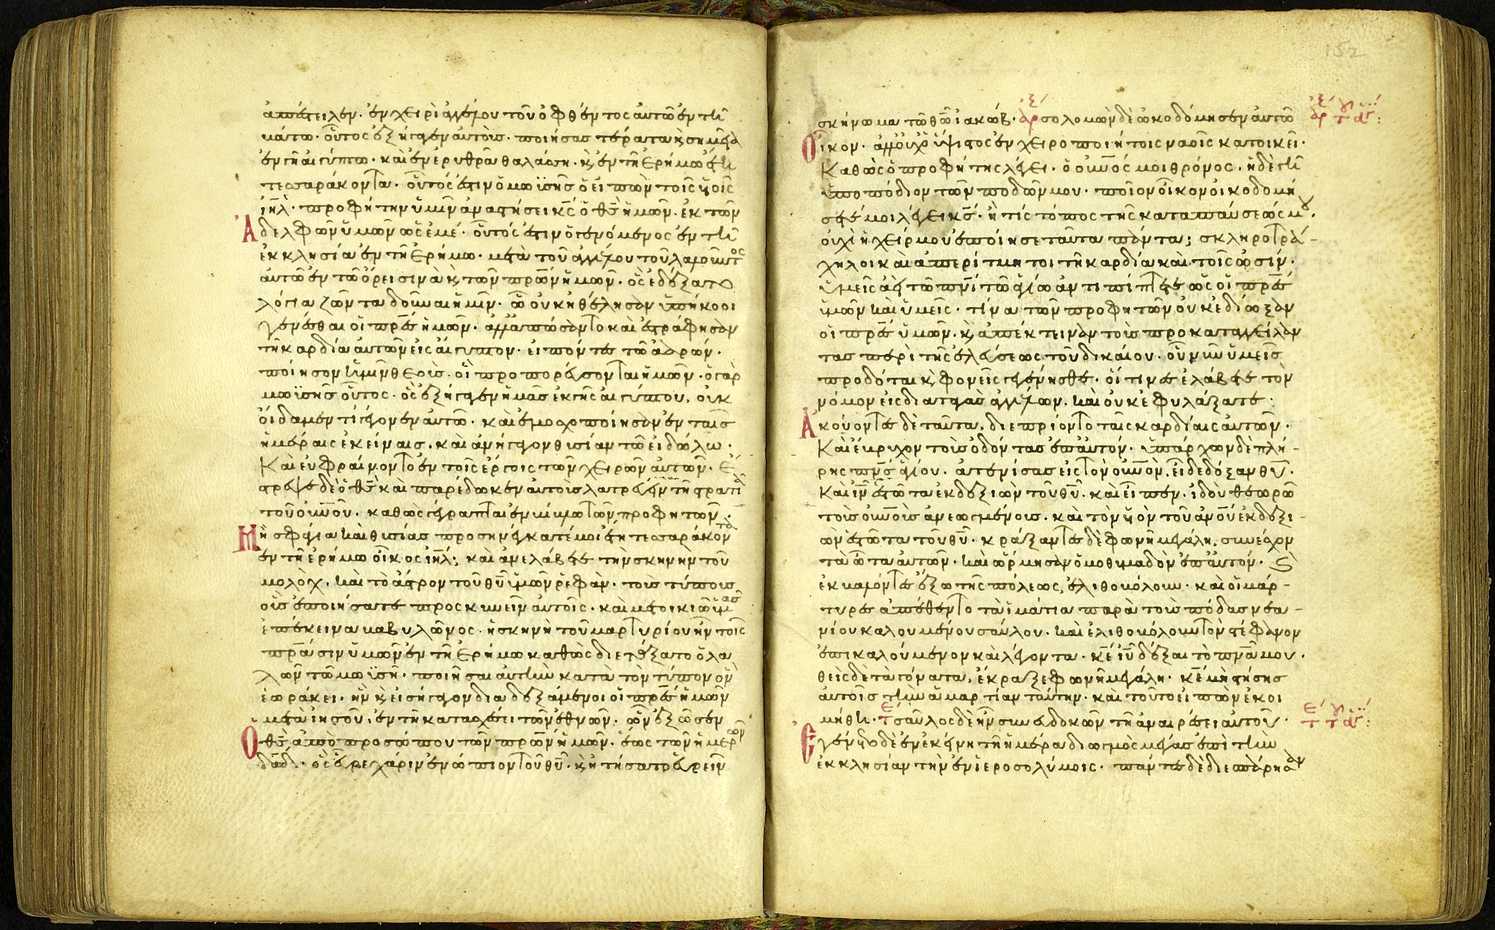 ἀπέστειλεν· ἐν χειρὶ ἀγγέλου τοῦ ὀφθέντος αὐτῶ ἐν τῆ
βάτω· οὗτος ἐξήγαγεν αὐτοὺς· ποιήσας τέρατα κ̀ σημεῖα
ἐν γῆ αἰγύπτω· καὶ ἐν ἐρυθρᾶ θαλάσση· κ̀ ἐν τῆ ἐρήμω ἔτη
τεσσαράκοντα· οὗτός ἐστιν ὁ μωϋσῆς ὁ εἰπὼν τοῖς υἱοῖς
ιηλ· προφήτην ὑμῖν ἀναστήσει κς ὁ θς ἡμῶν· ἐκ τῶν
ἀδελφῶν ὑμῶν ὡς ἐμέ· οὗτός ἐστιν ὁ γενόμενος ἐν τῆ
ἐκκλησία ἐν τῆ ἐρήμω· μετὰ τοῦ ἀγγέλου τοῦ λαλοῦντος
αὐτῶ ἐν τῶ ὄρει σινᾶ κ̀ τῶν πρων ἡμῶν· ὃς ἐδέξατο
λόγια ζῶντα δοῦναι ἡμῖν· ὧ οὐκ ἠθέλησαν ὑπήκοοι
γενέσθαι οἱ πρες ἡμῶν· ἀλλ' ἀπώσαντο καὶ ἐστράφησαν
τῆ καρδία αὐτῶν εἰς αἴγυπτον· εἰπόντες τῶ ἀαρών·
ποίησον ἡμῖν θεοὺς· οἳ προπορεύσονται ἡμῶν· ὁ γὰρ
μωϋσῆς οὗτος· ὃς ἐξήγαγεν ἡμᾶς ἐκ γῆς αἰγύπτου, οὐκ
οἴδαμεν τί γέγονεν αὐτῶ· καὶ ἐμοσχοποίησαν ἐν ταῖς
ἡμέραις ἐκείναις, καὶ ἀνήγαγον θυσίαν τῶ εἰδώλω·
καὶ εὐφραίνοντο ἐν τοῖς ἔργοις τῶν χειρῶν αὐτῶν· ἔ
στρεψε δὲ ὁ θς καὶ παρέδωκεν αὐτοὺς λατρεύειν τῆ στρατιᾶ
τοῦ οὐνου· καθὼς γέγραπται ἐν βίβλω τῶν προφητῶν·
μὴ σφάγια καὶ θυσίας προσηνέγκατέ μοι ἔτη τεσσαράκοντα
ἐν τῆ ἐρήμω οἶκος ιηλ; καὶ ἀνελάβετε τὴν σκηνὴν τοῦ
μολὸχ, καὶ τὸ ἄστρον τοῦ θυ ὑμῶν ρεφαν· τοὺς τύπους
οὓς ἐποιήσατε προσκυνεῖν αὐτοῖς· καὶ μετοικιῶ ὑμᾶς
ἐπέκεινα βαβυλῶνος· ἡ σκηνὴ τοῦ μαρτυρίου ἦν τοῖς
πρασιν ὑμῶν ἐν τῆ ἐρήμω καθὼς διετάξατο ὁ λα
λῶν τῶ μωϋσῆ· ποιῆσαι αὐτὴν κατὰ τὸν τύπον ὃν
ἑωράκει· ἣν κ̀ εἰσήγαγον διαδεξάμενοι οἱ πρες ἡμῶν
μετὰ ἰησοῦ, ἐν τῆ κατασχέσει τῶν ἐθνῶν· ὧν ἐξῶσεν
ὁ θς ἀπὸ προσώπου τῶν πρων ἡμῶν· ἕως τῶν ἡμερῶν
δαδ· ὃς εὗρε χάριν ἐνώπιον τοῦ θυ· κ̀ ἠτήσατο εὑρεῖν
152
σκήνωμα τῶ θῶ ἰακώβ· ἀρ σολομῶν δὲ ὠκοδόμησεν αὐτῶ
οἶκον· ἀλλ' οὐχ ὁ ὕψιστος ἐν χειροποιήτοις ναοῖς κατοικεῖ·
καθὼς ὁ προφήτης λέγει· ὁ οὐνός μοι θρόνος· ἡ δὲ γῆ
ὑποπόδιον τῶν ποδῶν μου· ποῖον οἶκον οἰκοδομή
σετέ μοι λέγει κς· ἢ τίς τόπος τῆς καταπαύσεώς μου,
οὐχὶ ἡ χείρ μου ἐποίησε ταῦτα πάντα; σκληροτρά-
χηλοι καὶ ἀπερίτμητοι τῆ καρδία καὶ τοῖς ὠσίν·
ὑμεῖς ἀεὶ τῶ πνι τῶ ἁγίω ἀντιπίπτετε ὡς οἱ πρες
ὑμῶν καὶ ὑμεῖς· τίνα τῶν προφητῶν οὐκ ἐδίωξαν
οἱ πρες ὑμῶν· κ̀ ἀπέκτειναν τοὺς προκαταγγείλαν
τας περὶ τῆς ἐλεύσεως τοῦ δικαίου· οὗ νῦν ὑμεῖς
προδόται κ̀ φονεῖς γεγένησθε· οἵτινες ἐλάβετε τὸν
νόμον εἰς διαταγὰς ἀγγέλων, καὶ οὐκ ἐφυλάξατε·
ἀκούοντες δὲ ταῦτα, διεπρίοντο ταῖς καρδίαις αὐτῶν·
καὶ ἔβρυχον τοὺς ὀδόντας ἐπ' αὐτόν· ὑπάρχων δὲ πλή-
ρης πνς ἁγίου· ἀτενίσας εἰς τὸν οὐνον, εἶδε δόξαν θυ·
καὶ ιν ἑστῶτα ἐκ δεξιῶν τοῦ θυ· καὶ εἶπεν· ἰδοὺ θεωρῶ
τοὺς οὐνοὺς ἀνεωγμένους· καὶ τὸν υἱὸν τοῦ ἀνου ἐκ δεξι-
ῶν ἑστῶτα τοῦ θυ· κράξαντες δὲ φωνῆ μεγάλη, συνέσχον
τὰ ὦτα αὐτῶν· καὶ ὥρμησαν ὁμοθυμαδὸν ἐπ' αὐτόν· κ̀
ἐκβαλόντες ἔξω τῆς πόλεως, ἐλιθοβόλουν· καὶ οἱ μάρ-
τυρες ἀπέθεντο τὰ ἱμάτια παρὰ τοὺς πόδας νεα-
νίου καλουμένου σαύλου· καὶ ἐλιθοβόλουν τὸν στέφανον
ἐπικαλούμενον καὶ λέγοντα· κε ιυ δέξαι τὸ πνα μου·
θεὶς δὲ τὰ γόνατα, ἔκραξε φωνῆ μεγάλη· κε μὴ στήσης
αὐτοῖς τὴν ἁμαρτίαν ταύτην· καὶ τοῦτο εἰπὼν ἐκοι
μήθη· σαῦλος δὲ ἦν συνευδοκῶν τῆ ἀναιρέσει αὐτοῦ·
ἐγένετο δὲ ἐν ἐκείνη τῆ ἡμέρα διωγμὸς μέγας ἐπὶ τὴν
ἐκκλησίαν τὴν ἐν ἱεροσολύμοις· πάντες δὲ διεσπάρησαν